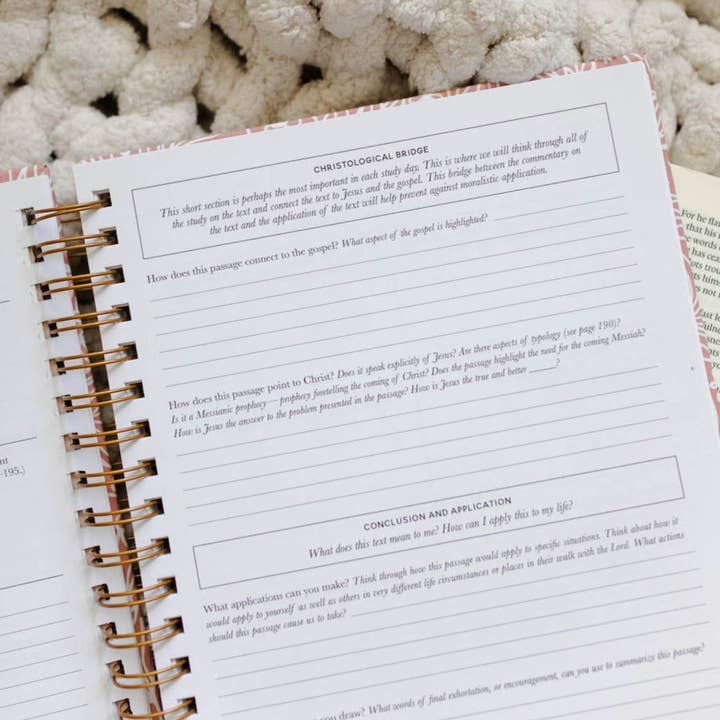 CHRISTOLOGICAL BRIDGE
This short section is perhaps the most important in each study day. This is where we will think through all of
the study on the text and connect the text to Jesus and the gospel. This bridge between the commentary on
the text and the application of the text will help prevent against moralistic application.
How does this passage connect to the gospel? What aspect of the gospel is highlighted?
How does this passage point to Christ? Does it speak explicitly of Jesus? Are there aspects of typology (see page 190)?
Is it a Messianic prophecy—prophecy foretelling the coming of Christ? Does the passage highlight the need for the coming Messiah?
How is Jesus the answer to the problem presented in the passage? How is Jesus the true and better _____?
CONCLUSION AND APPLICATION
What does this text mean to me? How can I apply this to my life?
What applications can you make? Think through how this passage would apply to specific situations. Think about how it
would apply to yourself as well as others in very different life circumstances or places in their walk with the Lord. What actions
should this passage cause us to take?
you draw? What words of final exhortation, or encouragement, can you use to summarize this passage?
-195.)
For he
that his
words
has